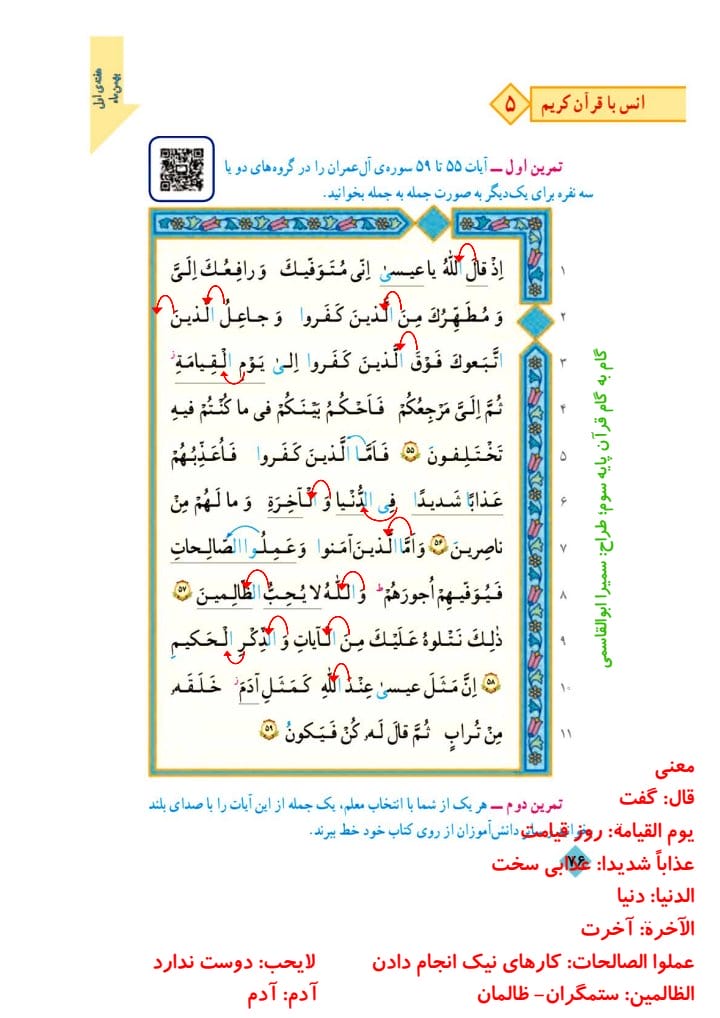 هفته‌ی اول
بهمن‌ماه
انس با قرآن کریم ۵
تمرین اول ــ آیات ۵۵ تا ۵۹ سوره‌ی آل‌عمران را در گروه‌های دو یا
سه نفره برای یک‌دیگر به صورت جمله به جمله بخوانید.
۱ اِذْ قالَ اللّٰهُ یا عیسیٰ اِنّی مُتَوَفّیکَ وَ رافِعُکَ اِلَیَّ
۲ وَ مُطَهِّرُکَ مِنَ الَّذینَ کَفَروا وَ جاعِلُ الَّذینَ
۳ اتَّبَعوکَ فَوْقَ الَّذینَ کَفَروا اِلیٰ یَوْمِ الْقِیامَةِ ۖ
۴ ثُمَّ اِلَیَّ مَرْجِعُکُمْ فَاَحْکُمُ بَیْنَکُمْ فی ما کُنْتُمْ فیهِ
۵ تَخْتَلِفونَ ۵۵ فَاَمَّا الَّذینَ کَفَروا فَاُعَذِّبُهُمْ
۶ عَذابًا شَدیدًا فِی الدُّنْیا وَ الْآخِرَةِ وَ ما لَهُمْ مِنْ
۷ ناصِرینَ ۵۶ وَ اَمَّا الَّذینَ آمَنوا وَ عَمِلُوا الصّالِحاتِ
۸ فَیُوَفّیهِمْ اُجورَهُمْ ۗ وَ اللّٰهُ لا یُحِبُّ الظّالِمینَ ۵۷
۹ ذٰلِکَ نَتْلوهُ عَلَیْکَ مِنَ الْآیاتِ وَ الذِّکْرِ الْحَکیمِ
۱۰ ۵۸ اِنَّ مَثَلَ عیسیٰ عِنْدَ اللّٰهِ کَمَثَلِ آدَمَ ۖ خَلَقَهٗ
۱۱ مِنْ تُرابٍ ثُمَّ قالَ لَهٗ کُنْ فَیَکونُ ۵۹
گام به گام قرآن پایه سوم؛ طراح: سمیرا ابوالقاسمی
تمرین دوم ــ هر یک از شما با انتخاب معلم، یک جمله از این آیات را با صدای بلند
دانش‌آموزان از روی کتاب خود خط ببرند.
۷۶
معنی
قال: گفت
یوم القیامة: روز قیامت
عذاباً شدیدا: عذابی سخت
الدنیا: دنیا
الآخرة: آخرت
عملوا الصالحات: کارهای نیک انجام دادن لایحب: دوست ندارد
الظالمین: ستمگران- ظالمان آدم: آدم